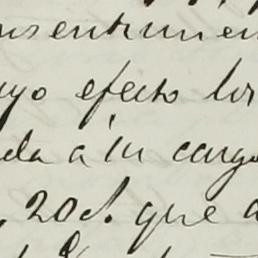 nsentimien
uyo efecto los
da a su cargo
, 20 d. que a